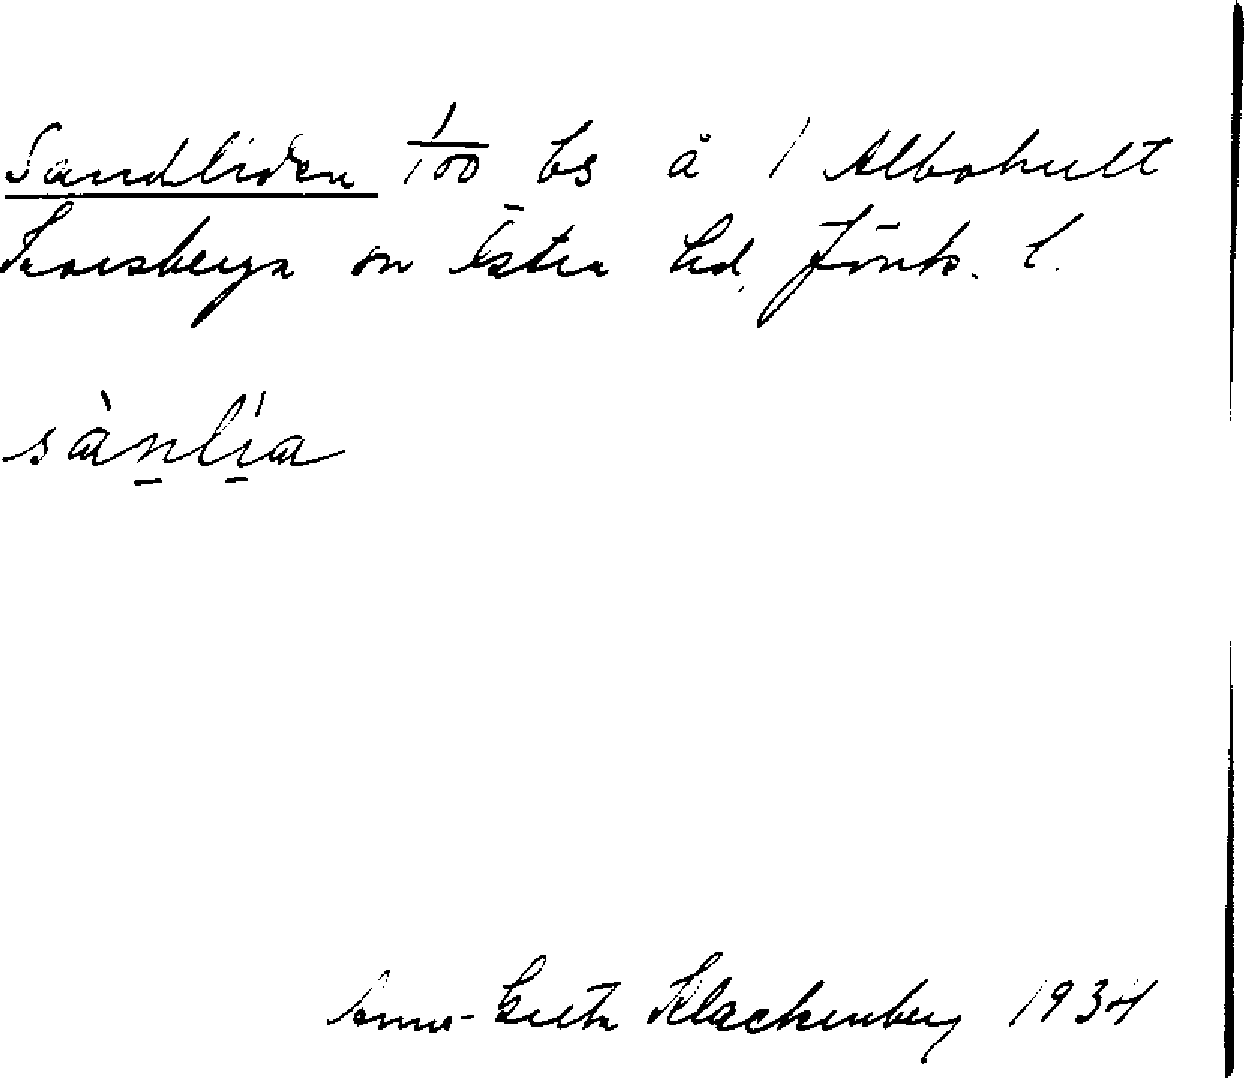 Sandliden 1/100 ls å 1 Albohult
Korsberga sn Östra hd, Jönk. l.
sànlía
Anna-Greta Klackenberg 1934